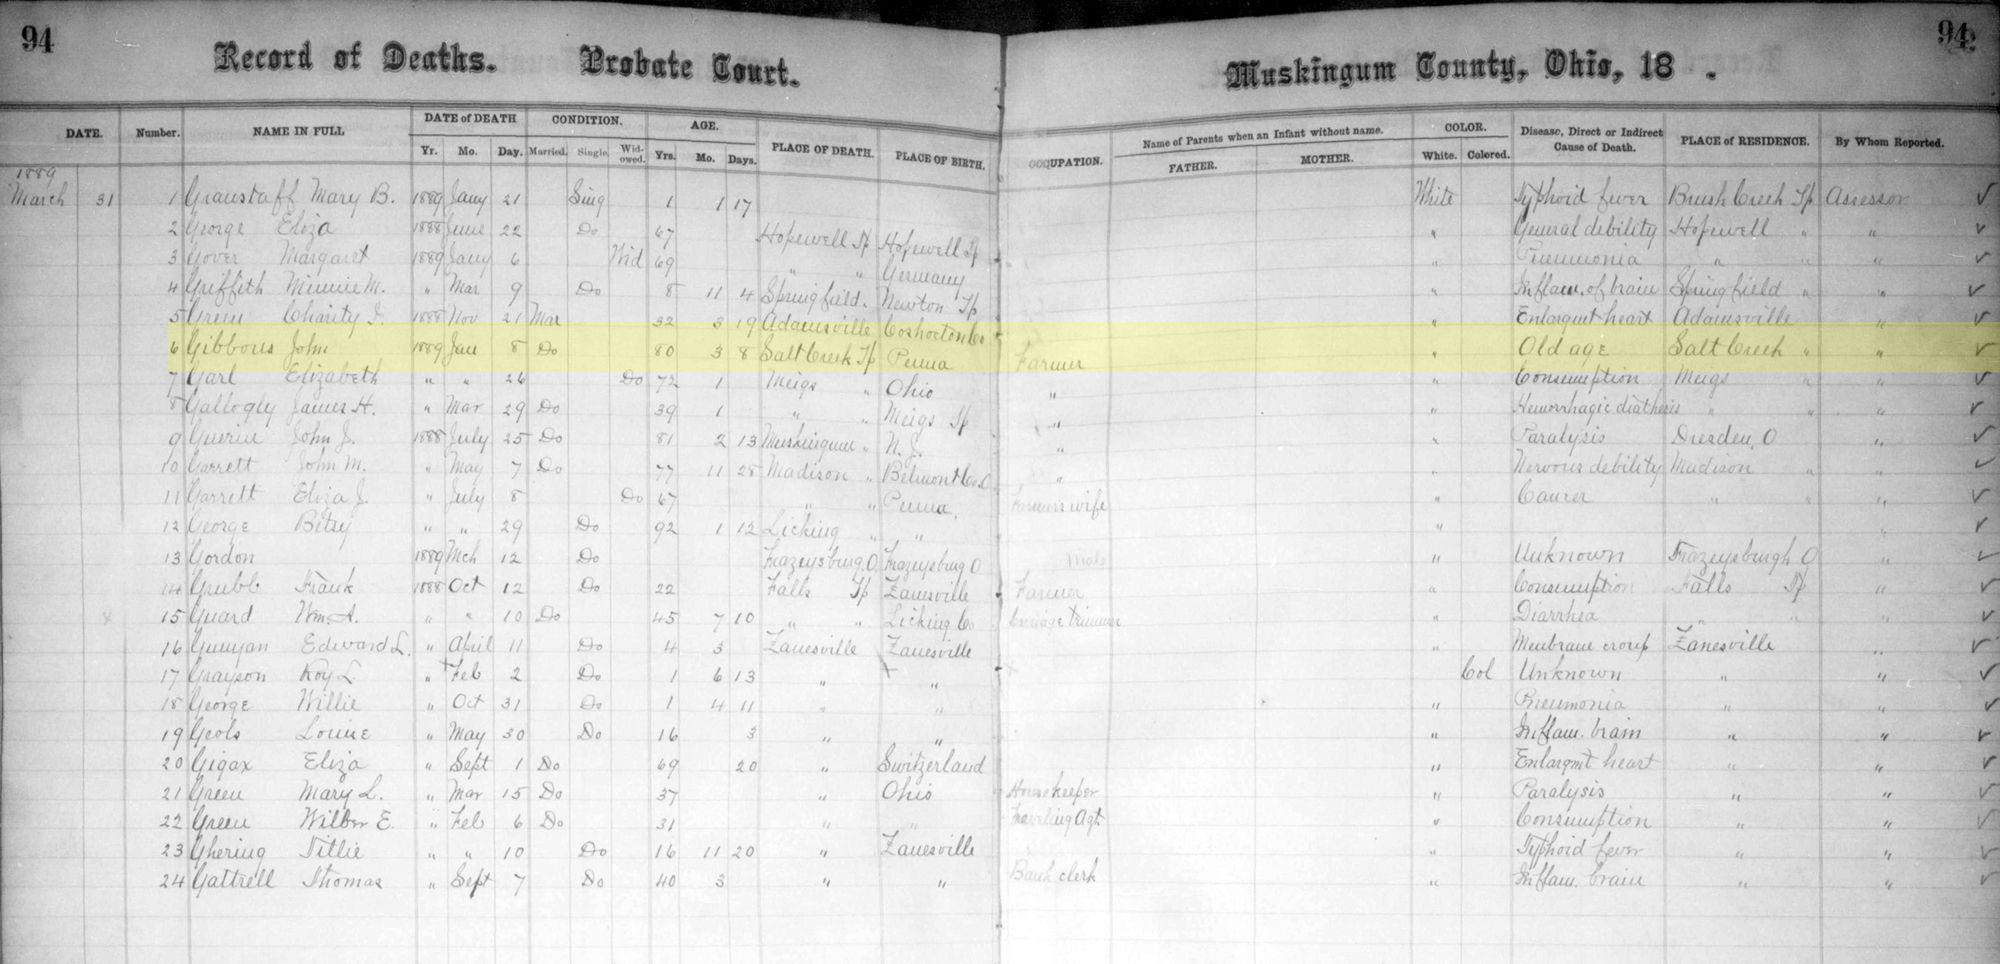 94
94
Record of Deaths. Probate Court.
Muskingum County, Ohio, 18 .
DATE. Number. NAME IN FULL DATE of DEATH CONDITION. AGE. PLACE OF DEATH. PLACE OF BIRTH. OCCUPATION. Name of Parents when an Infant without name. COLOR. Disease, Direct or Indirect Cause of Death. PLACE of RESIDENCE. By Whom Reported.
Yr. Mo. Day. Married. Single. Wid-owed. Yrs. Mo. Days. FATHER. MOTHER. White. Colored.
1889
March 31 1 Graustaff Mary B. 1889 Jany 21 Sing 1 1 17 White Typhoid fever Brush Creek Tp Assessor ✓
2 George Eliza 1888 June 22 Do 67 Hopewell Tp Hopewell Tp " General debility Hopewell " " ✓
3 Gover Margaret 1889 Jany 6 Wid 69 " " Germany " Pneumonia " " " ✓
4 Griffith Minnie M. " Mar 9 Do 8 11 4 Springfield " Newton Tp " Inflam. of brain Springfield " " ✓
5 Green Charity I. 1888 Nov 21 Mar 32 3 19 Adamsville Coshocton Co " Enlargmt heart Adamsville " ✓
6 Gibbons John 1889 Jan 8 Do 80 3 8 Salt Creek Tp Penna Farmer " Old age Salt Creek " " ✓
7 Garl Elizabeth " " 26 Do 72 1 Meigs " Ohio " " Consumption Meigs " " ✓
8 Gallogly James H. " Mar 29 Do 39 1 " " Meigs Tp " " Hemorrhagic diathesis " " " ✓
9 Guerin John J. 1888 July 25 Do 81 2 13 Muskingum " N. J. " " Paralysis Dresden, O " ✓
10 Garrett John M. " May 7 Do 77 11 28 Madison " Belmont Co O. " " Nervous debility Madison " " ✓
11 Garrett Eliza J. " July 8 Do 67 " " Penna. Farmer's wife " Cancer " " " ✓
12 George Betsy " " 29 Do 92 1 12 Licking " " " " ✓
13 Gordon 1889 Mch 12 Do Frazeysburg O. Frazeysburg O " Unknown Frazeysburgh O " ✓
14 Grubb Frank 1888 Oct 12 Do 22 Falls Tp Zanesville Farmer " Consumption Falls Tp " ✓
15 Guard Wm. A. " " 10 Do 45 7 10 " " Licking Co Carriage trimmer " Diarrhea " " " ✓
16 Edward L. " April 11 Do 4 3 Zanesville Zanesville " Membrane croup Zanesville " ✓
17 Grayson Roy L " Feb 2 Do 1 6 13 " " Col Unknown " " ✓
18 George Willie " Oct 31 Do 1 4 11 " " " Pneumonia " " ✓
19 Geols Louise " May 30 Do 16 3 " " " Inflam. brain " " ✓
20 Gigax Eliza " Sept 1 Do 69 20 " Switzerland " Enlargmt heart " " ✓
21 Green Mary L. " Mar 15 Do 37 " Ohio Housekeeper " Paralysis " " ✓
22 Green Wilber E. " Feb 6 Do 31 " " Traveling Agt " Consumption " " ✓
23 Ghering Tillie " " 10 Do 16 11 20 " Zanesville " Typhoid fever " " ✓
24 Gattrell Thomas " Sept 7 Do 40 3 " " Bank clerk " Inflam. brain " " ✓